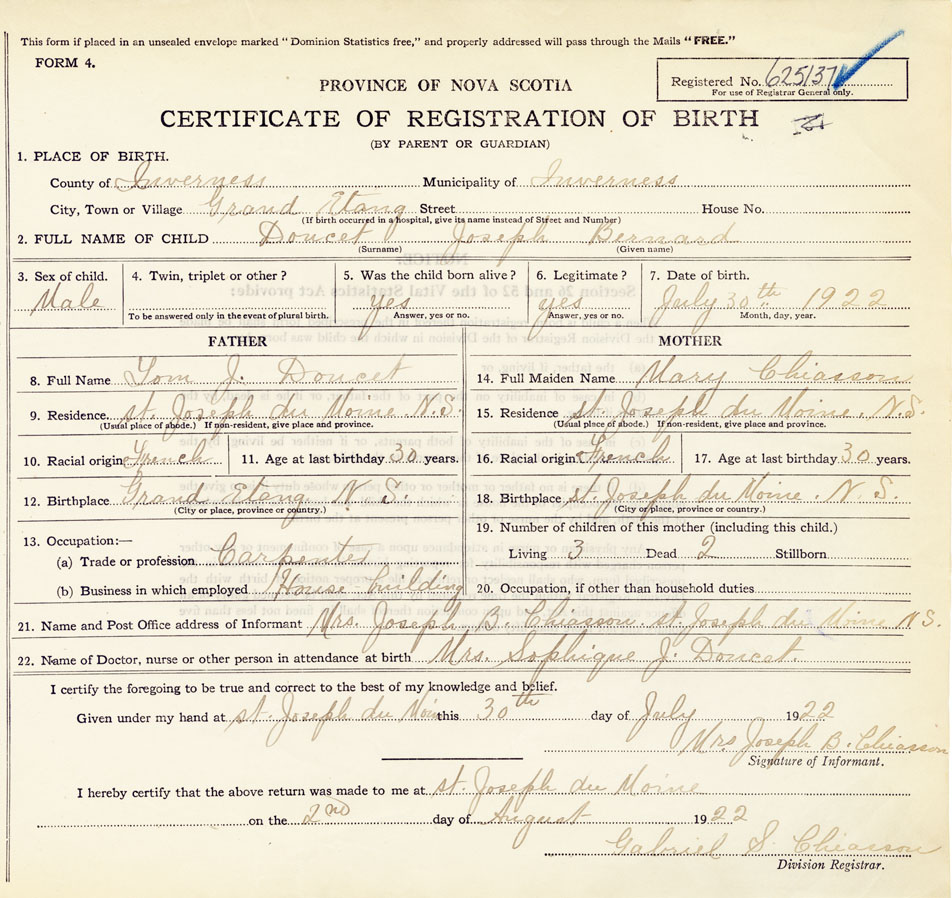 This form if placed in an unsealed envelope marked "Dominion Statistics free," and properly addressed will pass through the Mails "FREE."
FORM 4.
Registered No. 625137
For use of Registrar General only.
PROVINCE OF NOVA SCOTIA
CERTIFICATE OF REGISTRATION OF BIRTH
(BY PARENT OR GUARDIAN)
1. PLACE OF BIRTH.
County of Inverness Municipality of Inverness
City, Town or Village Grand Etang Street House No.
(If birth occurred in a hospital, give its name instead of Street and Number)
2. FULL NAME OF CHILD Doucet Joseph Bernard
(Surname) (Given name)
3. Sex of child. 4. Twin, triplet or other? 5. Was the child born alive? 6. Legitimate? 7. Date of birth.
Male yes yes July 30th 1922
To be answered only in the event of plural birth. Answer, yes or no. Answer, yes or no. Month, day, year.
FATHER
8. Full Name Tom J. Doucet
9. Residence st. Joseph du Moine N.S.
(Usual place of abode.) If non-resident, give place and province.
10. Racial origin French 11. Age at last birthday 30 years.
12. Birthplace Grand Etang N.S.
(City or place, province or country.)
13. Occupation:—
(a) Trade or profession Carpenter
(b) Business in which employed House building
MOTHER
14. Full Maiden Name Mary Chiasson
15. Residence st. Joseph du Moine. N.S.
(Usual place of abode.) If non-resident, give place and province.
16. Racial origin French 17. Age at last birthday 30 years.
18. Birthplace st. Joseph du Moine. N.S.
(City or place, province or country.)
19. Number of children of this mother (including this child.)
Living 3 Dead 2 Stillborn
20. Occupation, if other than household duties
21. Name and Post Office address of Informant Mrs. Joseph B. Chiasson. st. Joseph du Moine N.S.
22. Name of Doctor, nurse or other person in attendance at birth Mrs. Sophique J. Doucet.
I certify the foregoing to be true and correct to the best of my knowledge and belief.
Given under my hand at st. Joseph du Moine this 30th day of July 1922
Mrs Joseph B. Chiasson
Signature of Informant.
I hereby certify that the above return was made to me at st. Joseph du Moine
on the 2nd day of August 1922
Gabriel S. Chiasson
Division Registrar.